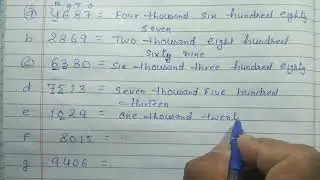 m o T O
ⓐ 4687 = Four thousand six hundred eighty
seven
b 2869 = Two thousand eight hundred
sixty nine
ⓒ 6380 = Six thousand three hundred eighty
d 7513 = Seven thousand Five hundred
thirteen
e 1029 = one thousand twent
f 8015 =
g 9406 =